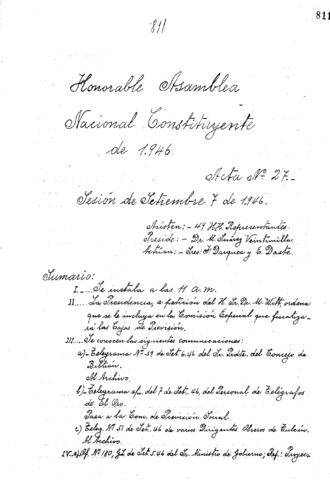 811
811
Honorable Asamblea
Nacional Constituyente
de 1.946.
Acta Nº 27.-
Sesión de Setiembre 7 de 1946.
Asisten:- 49 HH. Representantes.
Preside:- Dr. M. Suárez Veintimilla
Actúan:- Sres. F. Darquea y C. Daste.
Sumario:
I.....Se instala a las 11 a.m.
II.....La Presidencia, a petición del H. Sr. Dr. M. Witt, ordena
que se le incluya en la Comisión Especial que fiscaliza-
rá las Cajas de Previsión.
III....Se conocen las siguientes comunicaciones:
a)-Telegrama Nº 59 de Set. 6.46 del Sr. Pdte. del Concejo de
Biblián.
Al Archivo.
b)-Telegrama s/n. del 7 de Set. 46, del Personal de Telégrafos
de El Oro.
Pasa a la Com. de Previsión Social.
c) Teleg. Nº 51 de Set. 46 de varios Dirigentes Obreros de Tulcán.
Al Archivo.
IV.a) Of. Nº 180, de Set. 5.46 del Sr. Ministro de Gobierno; Ref.: Proyec